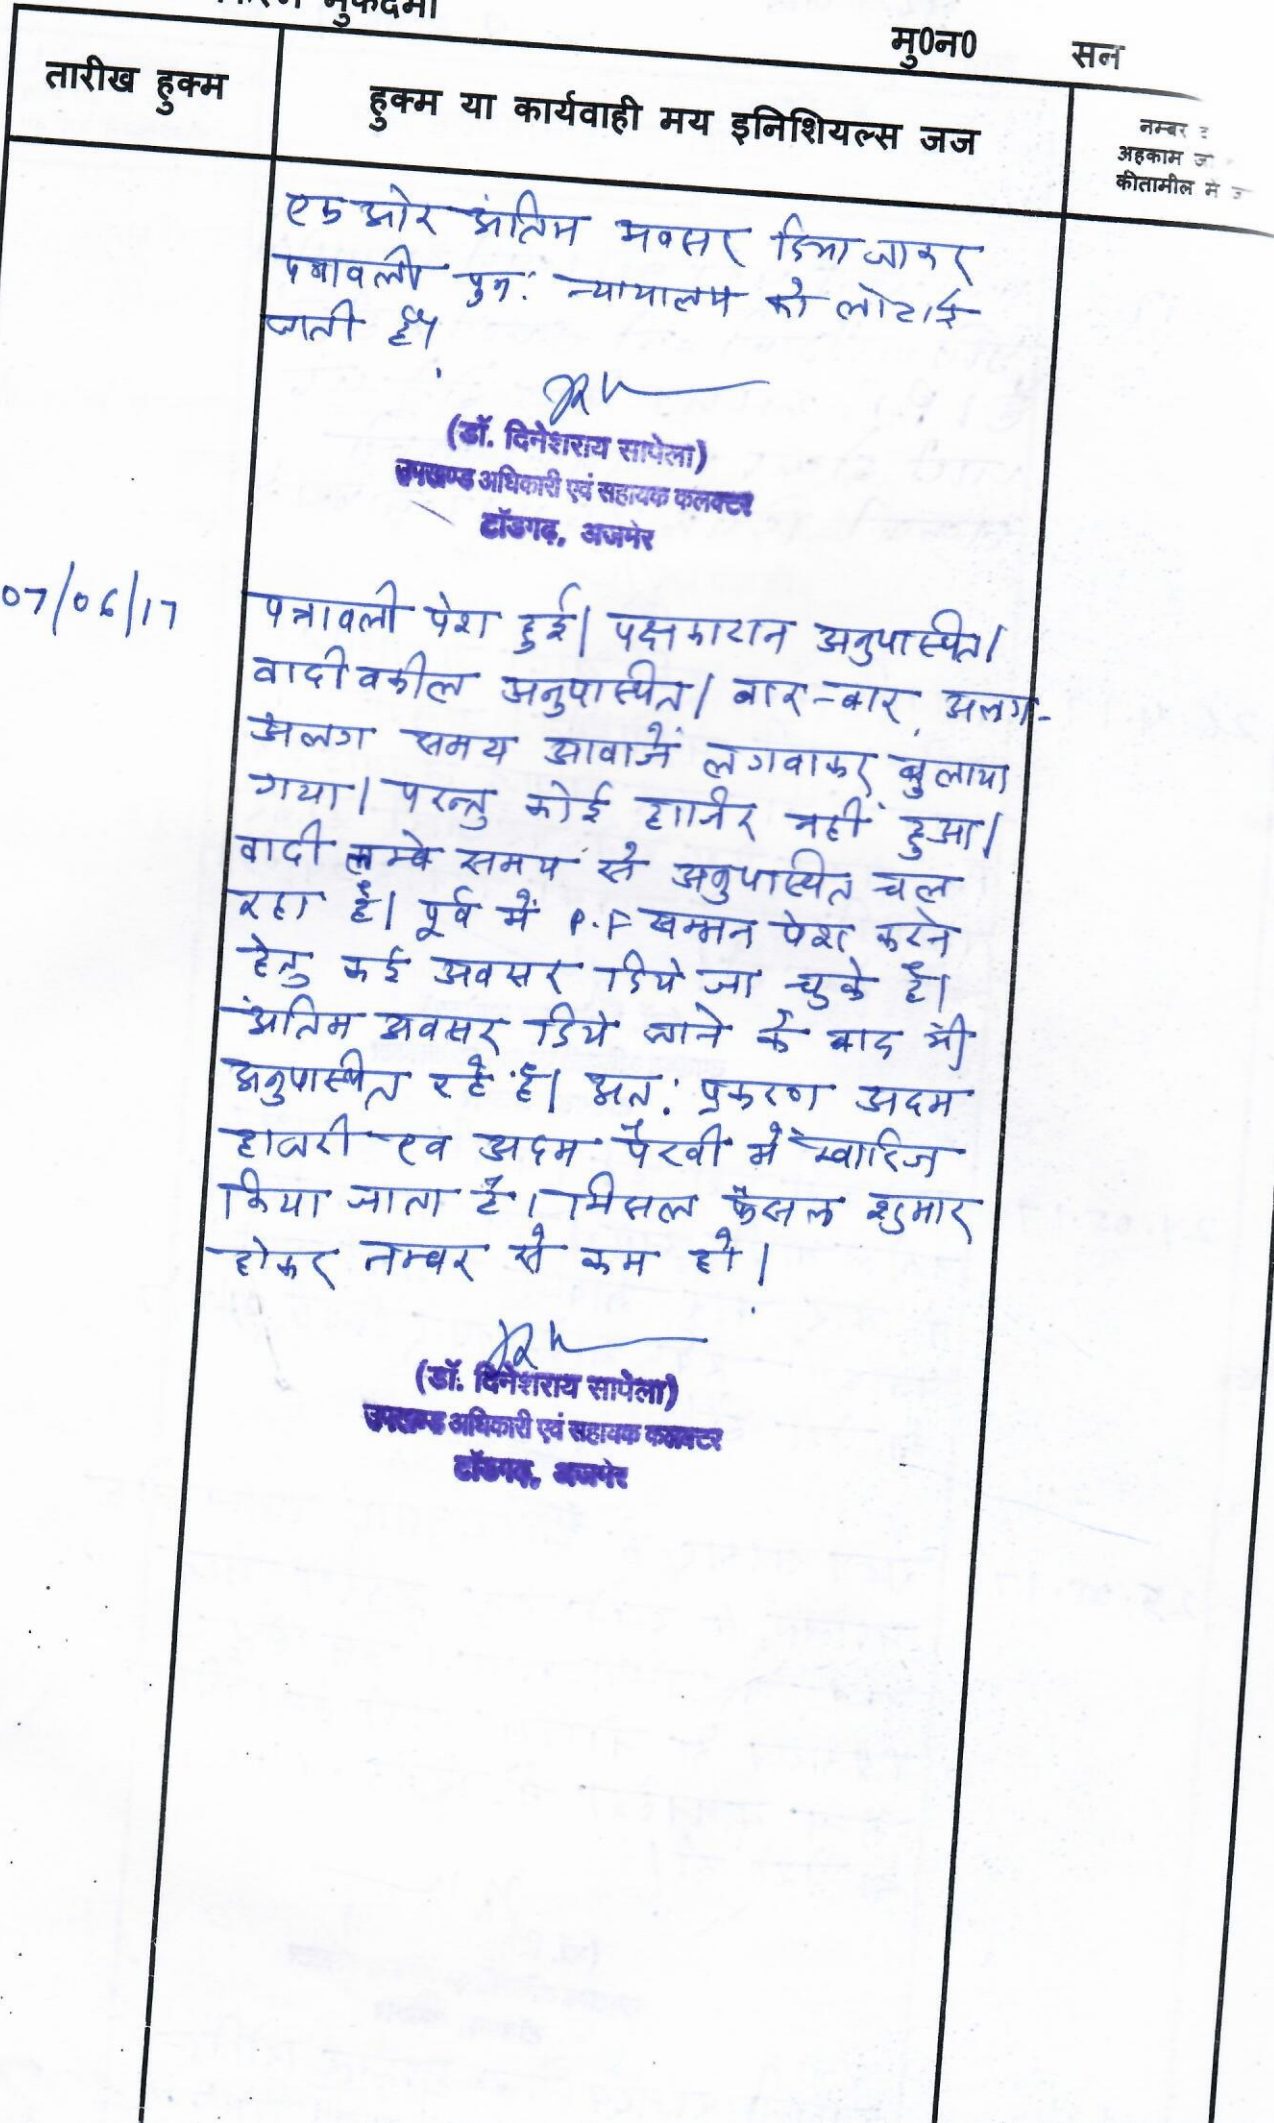 मुकदमा
मु0न0 सन
तारीख हुक्म
हुक्म या कार्यवाही मय इनिशियल्स जज
नम्बर
अहकाम
कीतामील में
एक ओर अंतिम अवसर दिया जाकर
पत्रावली पुनः न्यायालय को लोटाई
जाती है।
(डॉ. दिनेशराय सापेला)
उपखण्ड अधिकारी एवं सहायक कलक्टर
टॉडगढ़, अजमेर
07/06/17
पत्रावली पेश हुई। पक्षकारान अनुपास्थित।
वादी वकील अनुपास्थित। बार-बार अलग-
अलग समय आवाजें लगवाकर बुलाया
गया। परन्तु कोई हाजिर नहीं हुआ।
वादी लम्बे समय से अनुपास्थित चल
रहा है। पूर्व में P.F सम्मन पेश करने
हेतु कई अवसर दिये जा चुके है।
अंतिम अवसर दिये जाने के बाद भी
अनुपास्थित रहे है। अतः प्रकरण अदम
हाजरी एव अदम पैरवी में खारिज
किया जाता है। मिसल फैसल शुमार
होकर नम्बर से कम हो।
(डॉ. दिनेशराय सापेला)
उपखण्ड अधिकारी एवं सहायक कलक्टर
टॉडगढ़, अजमेर